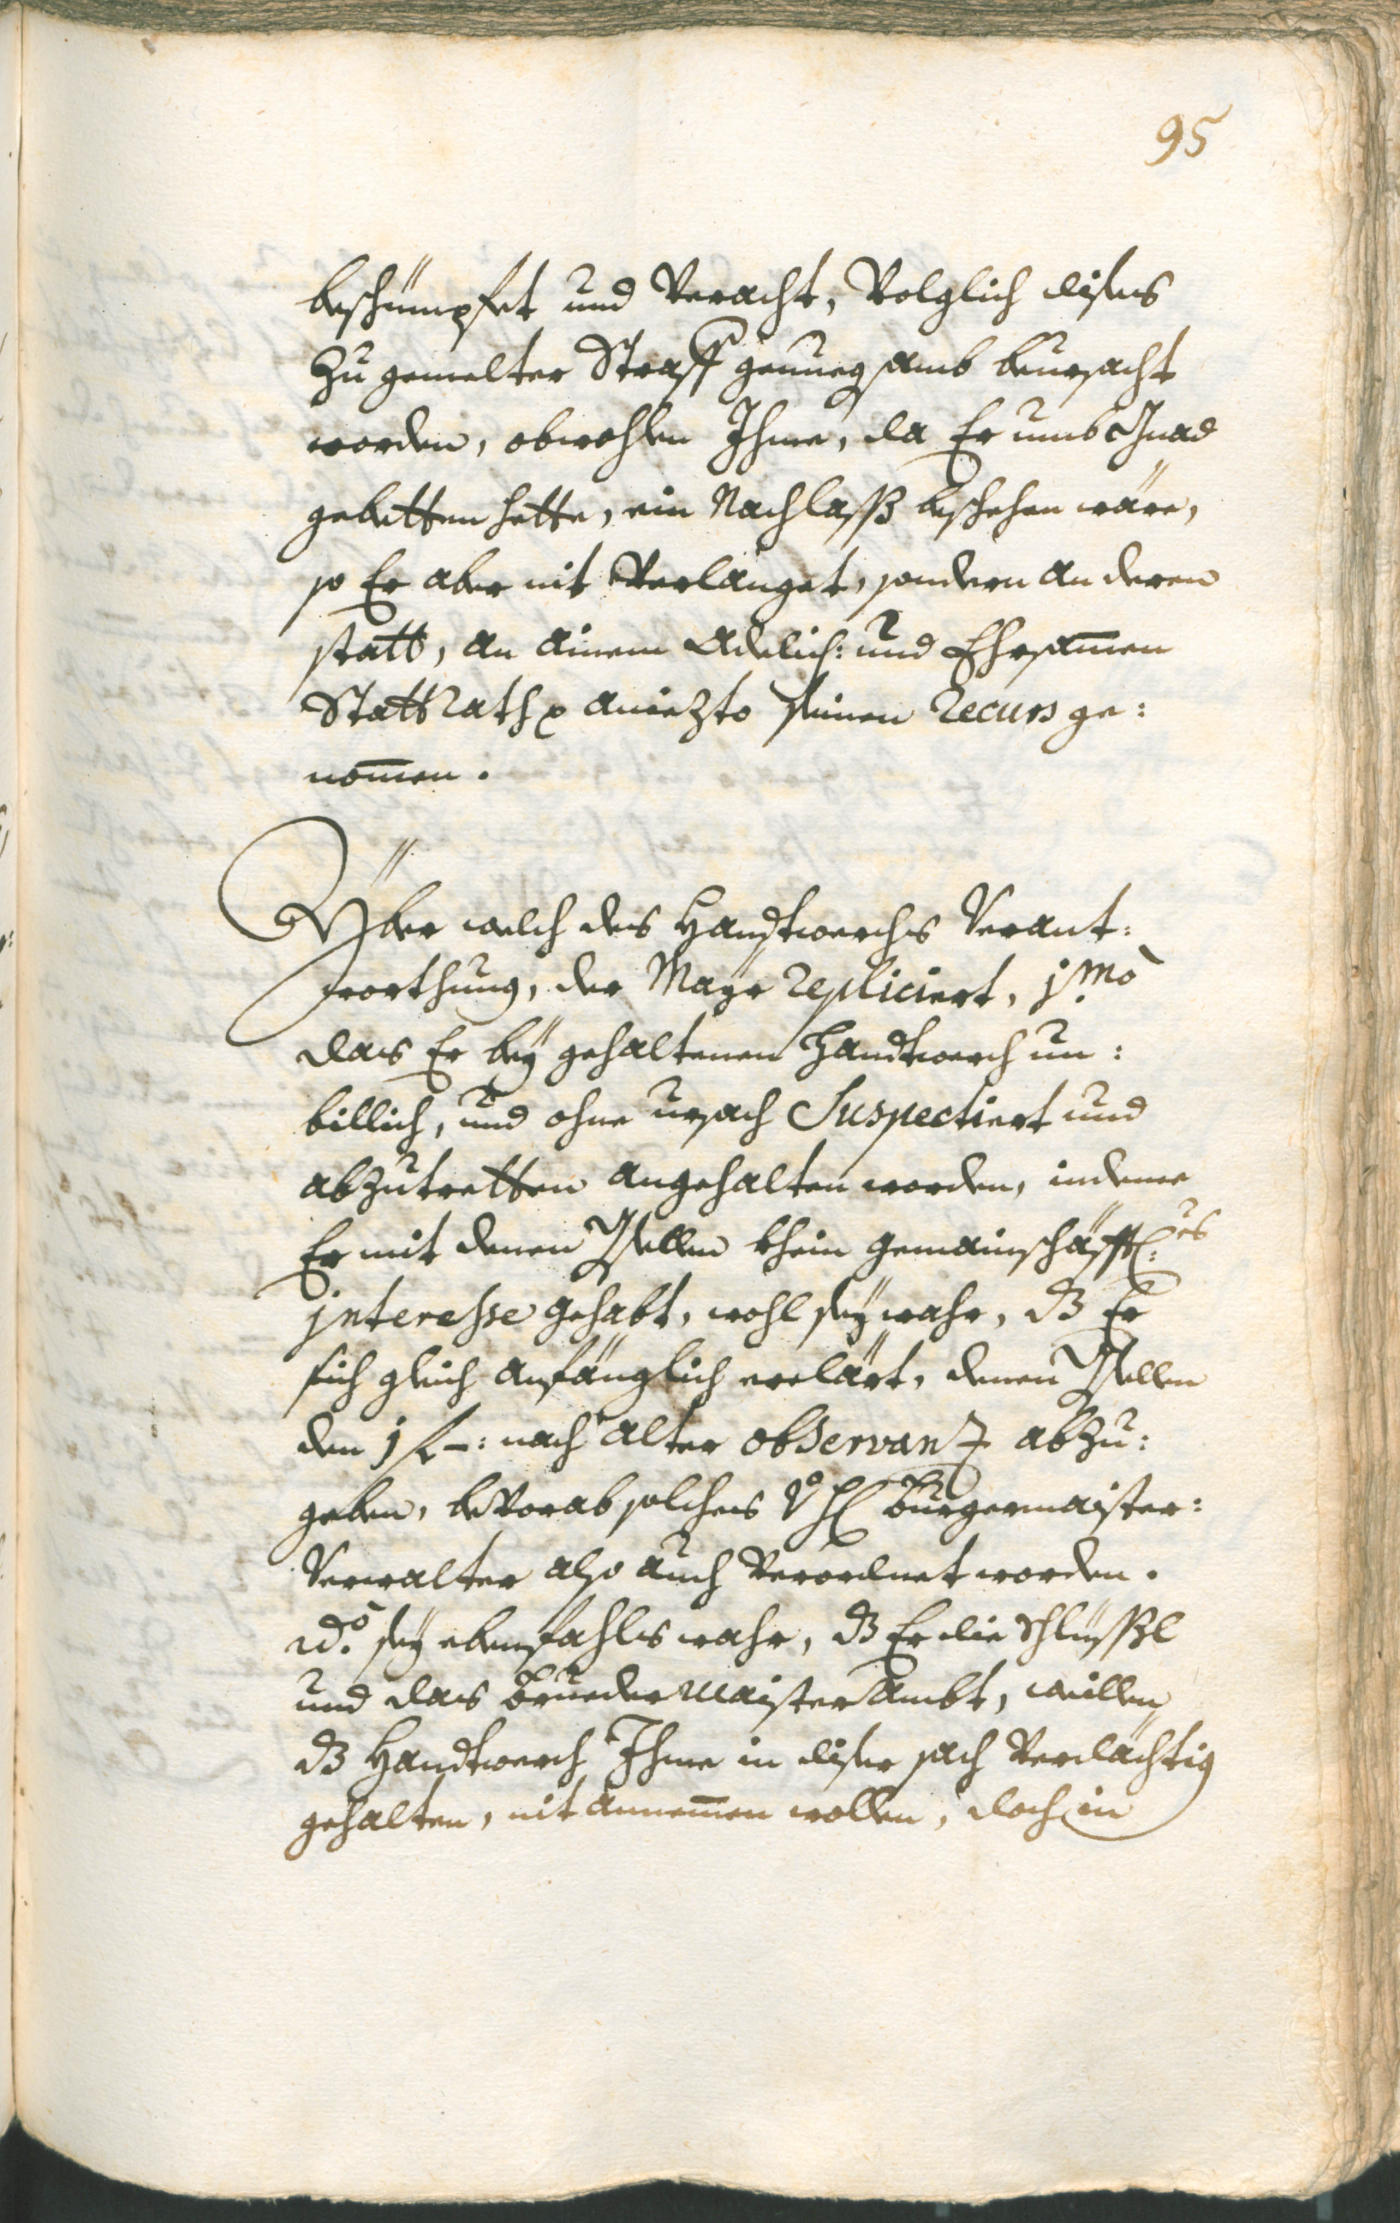 95
beschümpfet und Veracht, Volglich dises
Zu gemelter Straff genuegsamb beursacht
worden, obwohlen Ihme, da Er umb Gnad
gebetten hette, ein Nachlasß beschehen wäre,
so Er aber nit Verlanget, sondern an deren
statt, an ainem Adelich: und Ehrsamen
Statt Rath aniezto seinen Recurs ge:
nomen.
Yber welch des Handtwerchs Verant:
worthung, der Mayr repliciert, jmo
das Er bey gehaltenen Handtwerch un:
billich, und ohne ursach Suspectiert und
abzutretten angehalten worden, indeme
Er mit denen Gsellen khein gemainschäfftl:es
jnteresse gehabt, wohl sey wahr, dz Er
sich gleich anfänglich erclärt, denen Gsellen
den 1 f –: nach alter observanz abzu:
geben, bevorab solches Vo H Burgermaister:
Verwalter also auch Verordnet worden.
2do sey ebenfahls wahr, dz Er die Schlüssl
und das Brueder Maister Ambt, weillen
dz Handtwerch Ihme in diser sach Verdächtig
gehalten, nit annemen wollen, doch in